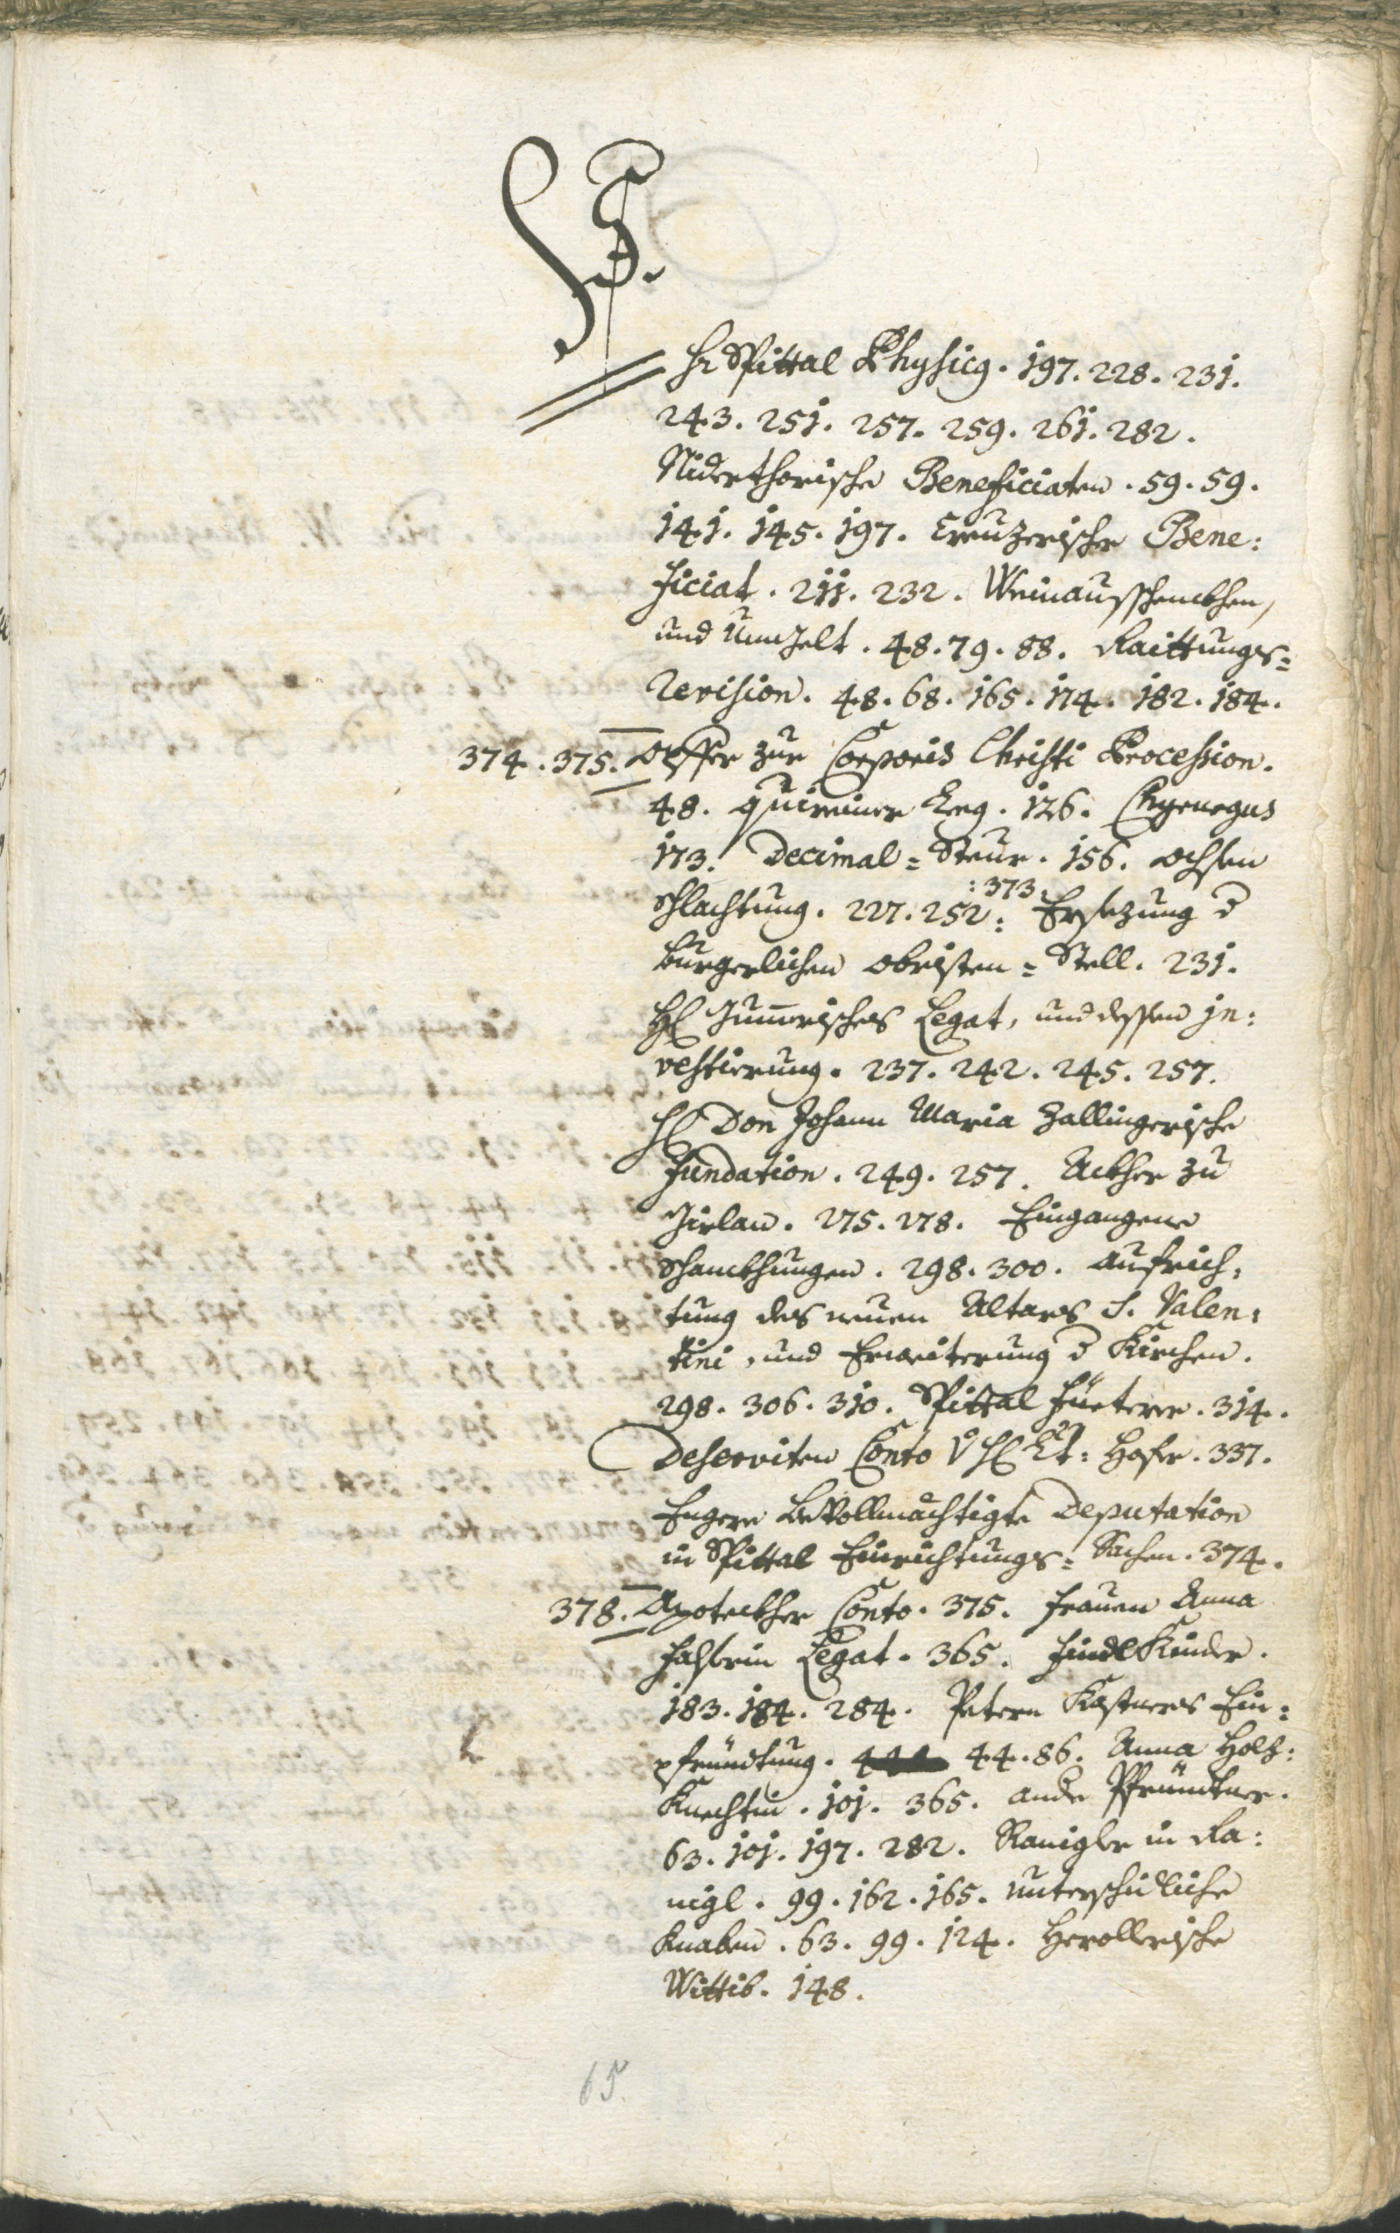 S.
Hr Spittal Physicg. 197. 228. 231.
243. 251. 257. 259. 261. 282.
Niderthorische Beneficiaten. 59. 59.
141. 145. 197. Creuzerischer Bene:
ficiat. 211. 232. Weinausschenckhen,
und Umgelt. 48. 79. 88. Raittungs=
Revision. 48. 68. 165. 174. 182. 184.
374. 375. Opffer zur Corporis Christi Procession.
48. Quirainer 126.
173. Decimal=Steur. 156. Ochsen
:373.
schlachtung. 227. 252: Ersezung d
burgerlichen obristen=Stell. 231.
H Legat, und dessen in:
vestierung. 237. 242. 245. 257.
H Don Johann Maria Zallingerische
fundation. 249. 257. Ackher zu
Girlan. 275. 278. Eingangene
Schanckhungen. 298. 300. Aufrich:
tung des neuen Altars S. Valen:
tini, und Erweiterung d Kirchen.
298. 306. 310. Spittal Füeterer. 314.
Deserviten Conto v H Hofer. 337.
Engere bevollmächtigte Deputation
in Spittal Einrichtungs=Sachen. 374.
378. Apoteckher Conto. 375. Frauen Anna
Legat. 365. findlKinder.
183. 184. 284. Petern Kastners Ein:
pfründtung. 44. 86. Anna Holz:
Knechtin. 101. 365. andre Pfründtner.
63. 101. 197. 282. Ranigler in Ra:
nigl. 99. 162. 165. unterschidliche
Knaben. 63. 99. 124. Herollerische
Wittib. 148.
65.